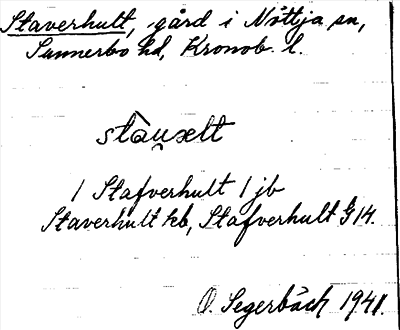 Staverhult, gård i Nöttja sn,
Sunnerbo hd, Kronob. l.
stàu̯xlt
1 Stafverhult 1 jb
Staverhult kb, Stafverhult G 14.
O. Segerbäck 1941.